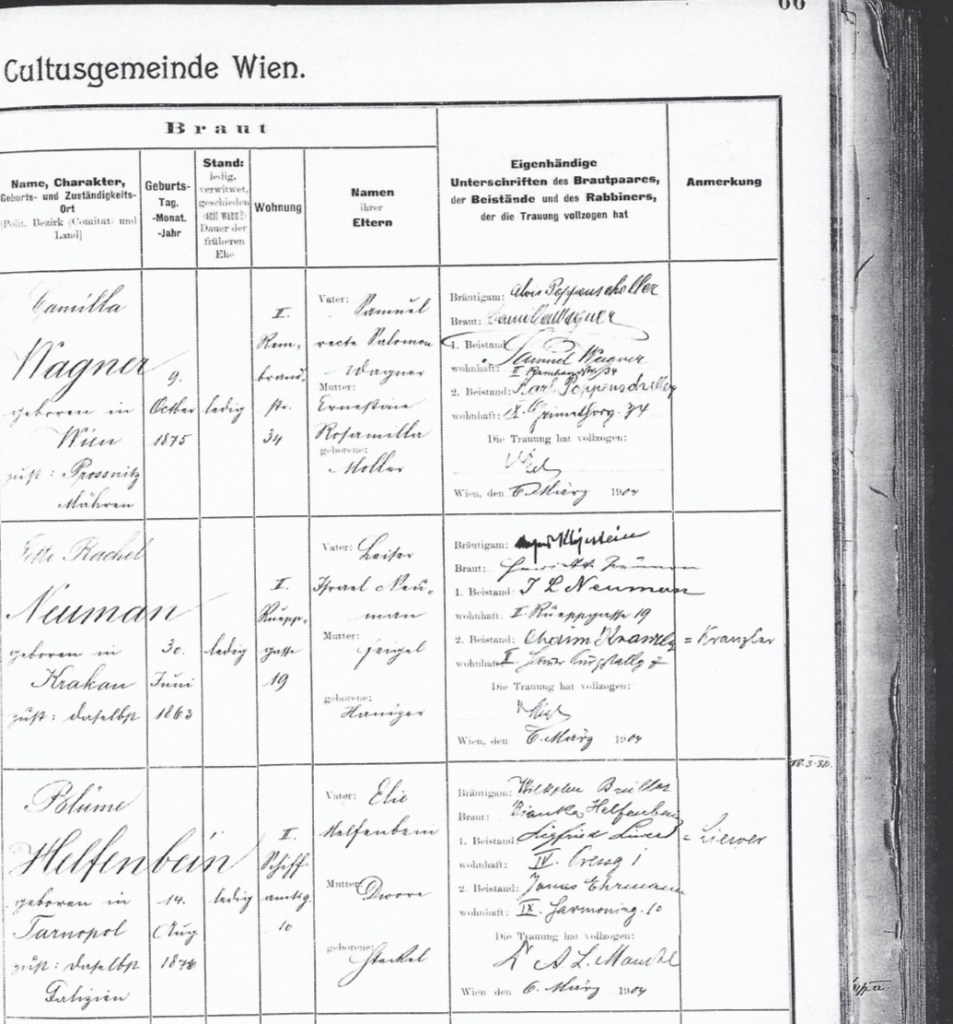 66
Cultusgemeinde Wien.
Braut
Name, Charakter,
Geburts- und Zuständigkeits-
Ort
(Polit. Bezirk (Comitat) und
Land)
Geburts-
Tag,
-Monat,
-Jahr
Stand:
ledig,
verwitwet,
geschieden
(seit wann?)
Dauer der
früheren
Ehe
Wohnung
Namen
ihrer
Eltern
Eigenhändige
Unterschriften des Brautpaares,
der Beistände und des Rabbiners,
der die Trauung vollzogen hat
Anmerkung
Camilla
Wagner
geboren in
Wien
zust: Prossnitz
Mähren
9.
October
1875
ledig
II.
Rem,
brand,
str.
34
Vater: Samuel
recte Salomon
Wagner
Mutter:
Ernestine
Rosamilla
geborene:
Moller
Bräutigam: Alois Poppenscheller
Braut: Camilla Wagner
1. Beistand: Samuel Wagner
wohnhaft: II Rembrandtstr 34
2. Beistand: Karl Poppenscheller
wohnhaft: IX. 34
Die Trauung hat vollzogen:
Wien, den 6. März 1904
Rachel
Neuman
geboren in
Krakau
zust: daselbst
30.
Juni
1863
ledig
II.
Ruepp,
gasse
19
Vater: Leiser
Israel Neu,
man
Mutter:
Feigel
geborene:
Haniger
Bräutigam:
Braut:
1. Beistand: J L Neuman
wohnhaft: II Rueppgasse 19
2. Beistand: Chaim Kranzler = Kranzler
wohnhaft: II
Die Trauung hat vollzogen:
Wien, den 6. März 1904
18.3.30.
Blüme
Helfenbein
geboren in
Tarnopol
zust: daselbst
Galizien
14.
Aug
1876
ledig
II.
Schiff
amtsg.
10
Vater: Elie
Helfenbein
Mutter: Dwore
geborene:
Steckel
Bräutigam: Wilhelm
Braut: Bianka Helfenbein
1. Beistand: Sigfried
wohnhaft: IV. 1
2. Beistand: Jonas Ehrmann
wohnhaft: IX. Harmonieg. 10
Die Trauung hat vollzogen:
Dr A. L.
Wien, den 6. März 1904